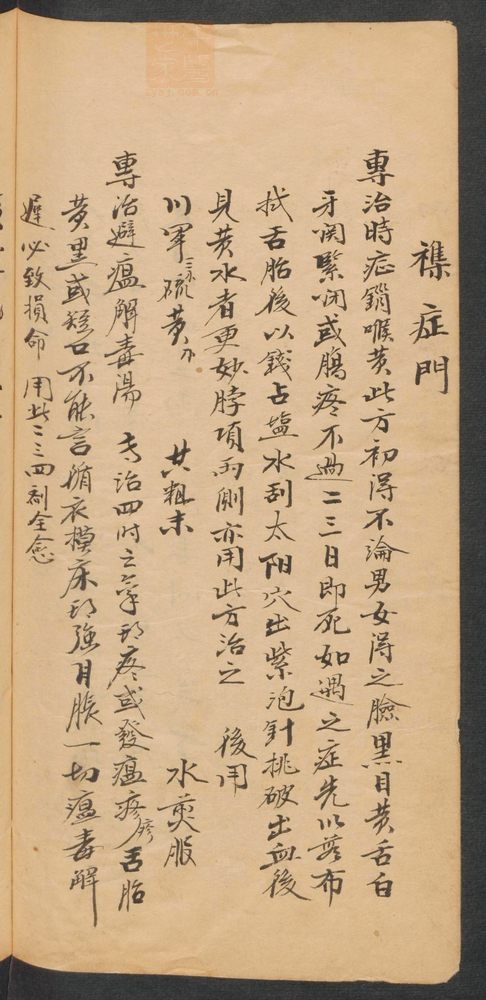 襍症門
專治時症鎖喉黃此方初得不論男女得之臉黑目黃舌白
牙関緊闭或腸疼不過二三日即死如遇之症先以藍布
拭舌胎後以錢占塩水刮太阳穴出紫泡針挑破出血後
見黃水者更妙脖項両側亦用此方治之 後用
川軍三小 硫黃刀 共粗末 水煎服
專治避瘟解毒湯 专治四时之氣頭疼或發瘟疹疼舌胎
黃黑或短口不能言循衣摸床頭强目脹一切瘟毒解
遲必致損命 用此二三四剂全愈